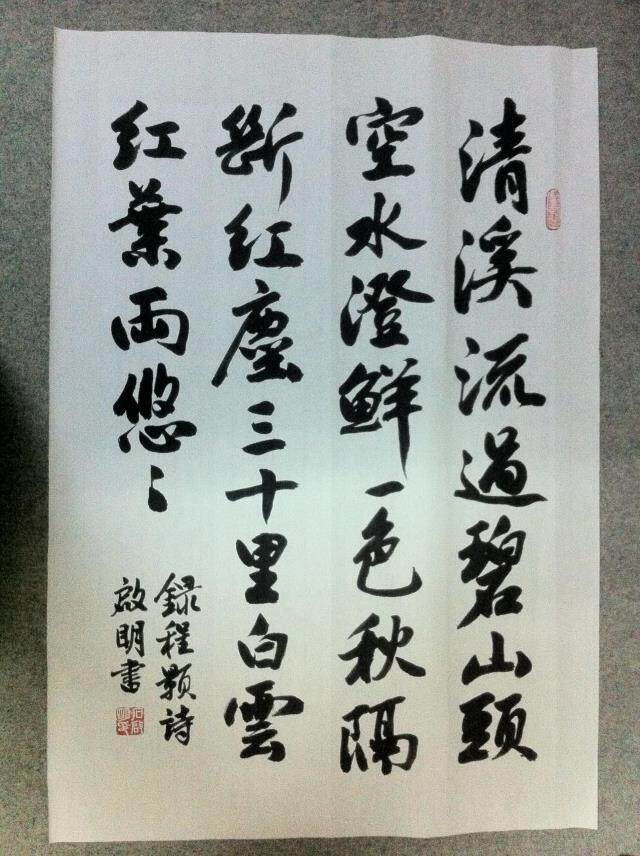 清溪流過碧山頭
空水澄鮮一色秋隔
斷紅塵三十里白雲
紅葉兩悠〻
錄程顥詩
啟明書